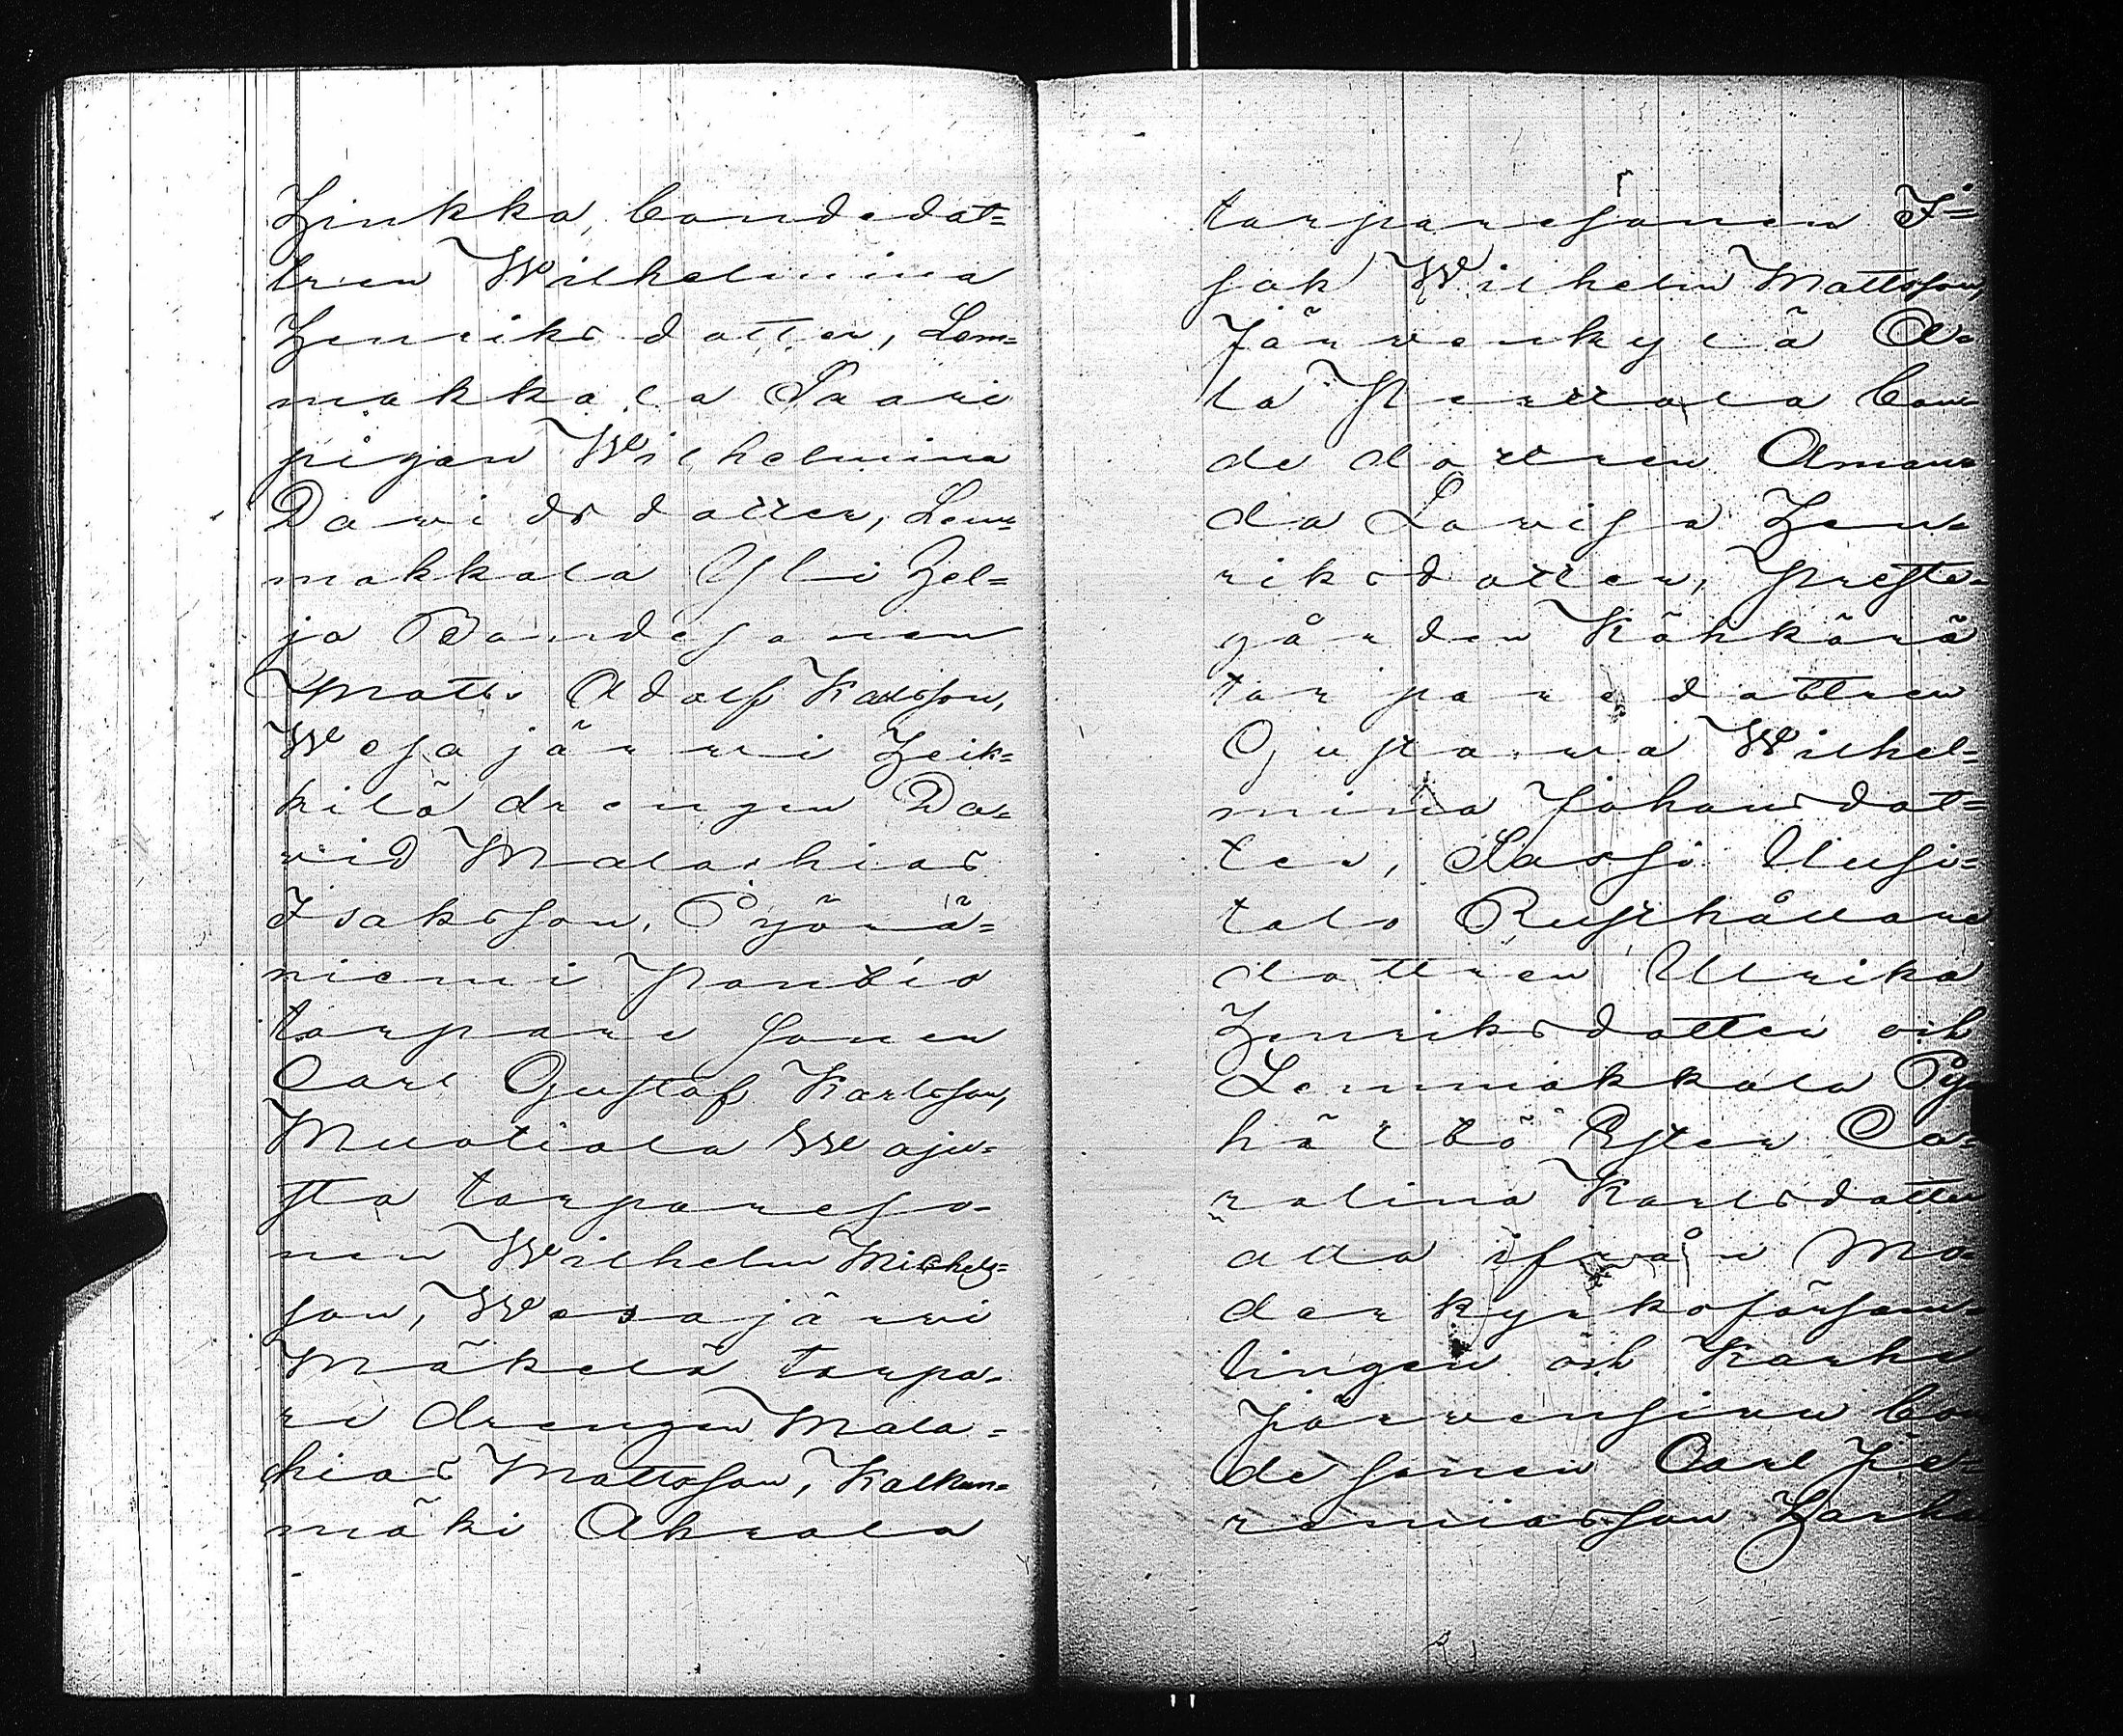 Hinkka, bondedot=
tren Wilhelmina
Henriksdotter, Lem=
makkala Saari
pigan Wilhelmina
Davidsdotter, Lem=
makkala Yli Hel=
ja Bondesonen
Matts Adolf Karlsson,
Wesajärvi Heik=
kilä drengen Da=
vid Malachias
Isaksson, Pyörä=
niemi Pontio
torpare sonen
Carl Gustaf Karlsson,
Muotiala Waju=
sta torpareso=
nen Wilhelm Michels=
son, Wesajärvi
Mäkelä torpa=
re drengen Mala=
kias Mattsson, Kalkun=
mäki Ahrola
torparesonen I=
sak Wilhelm Mattsson,
Järvenkylä A=
la Perttala bon=
de dottren Aman=
da Lovisa Hen=
riksdotter, Preste=
gården Kähkärä
torparedottren
Gustava Wilhel=
mina Johansdot=
ter, Sassi Uusi=
talo Rusthållare
dottren Ulrika
Henriksdotter och
Lemmakkala Py
hältö Ester Ca=
rolina Karlsdotter
alla ifrån Mo=
derkyrkoförsam=
lingen och Karhe
Järvensivu bon
de sonen Carl Je=
remiasson Harha